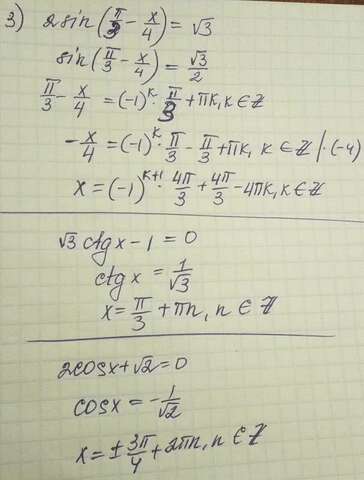 3) 2sin(π/3 - x/4) = √3
sin(π/3 - x/4) = √3/2
π/3 - x/4 = (-1)^k · π/3 + πk, k ∈ Z
-x/4 = (-1)^k · π/3 - π/3 + πk, k ∈ Z | · (-4)
x = (-1)^(k+1) · 4π/3 + 4π/3 - 4πk, k ∈ Z
√3 ctgx - 1 = 0
ctgx = 1/√3
x = π/3 + πn, n ∈ Z
2cosx + √2 = 0
cosx = -1/√2
x = ± 3π/4 + 2πn, n ∈ Z